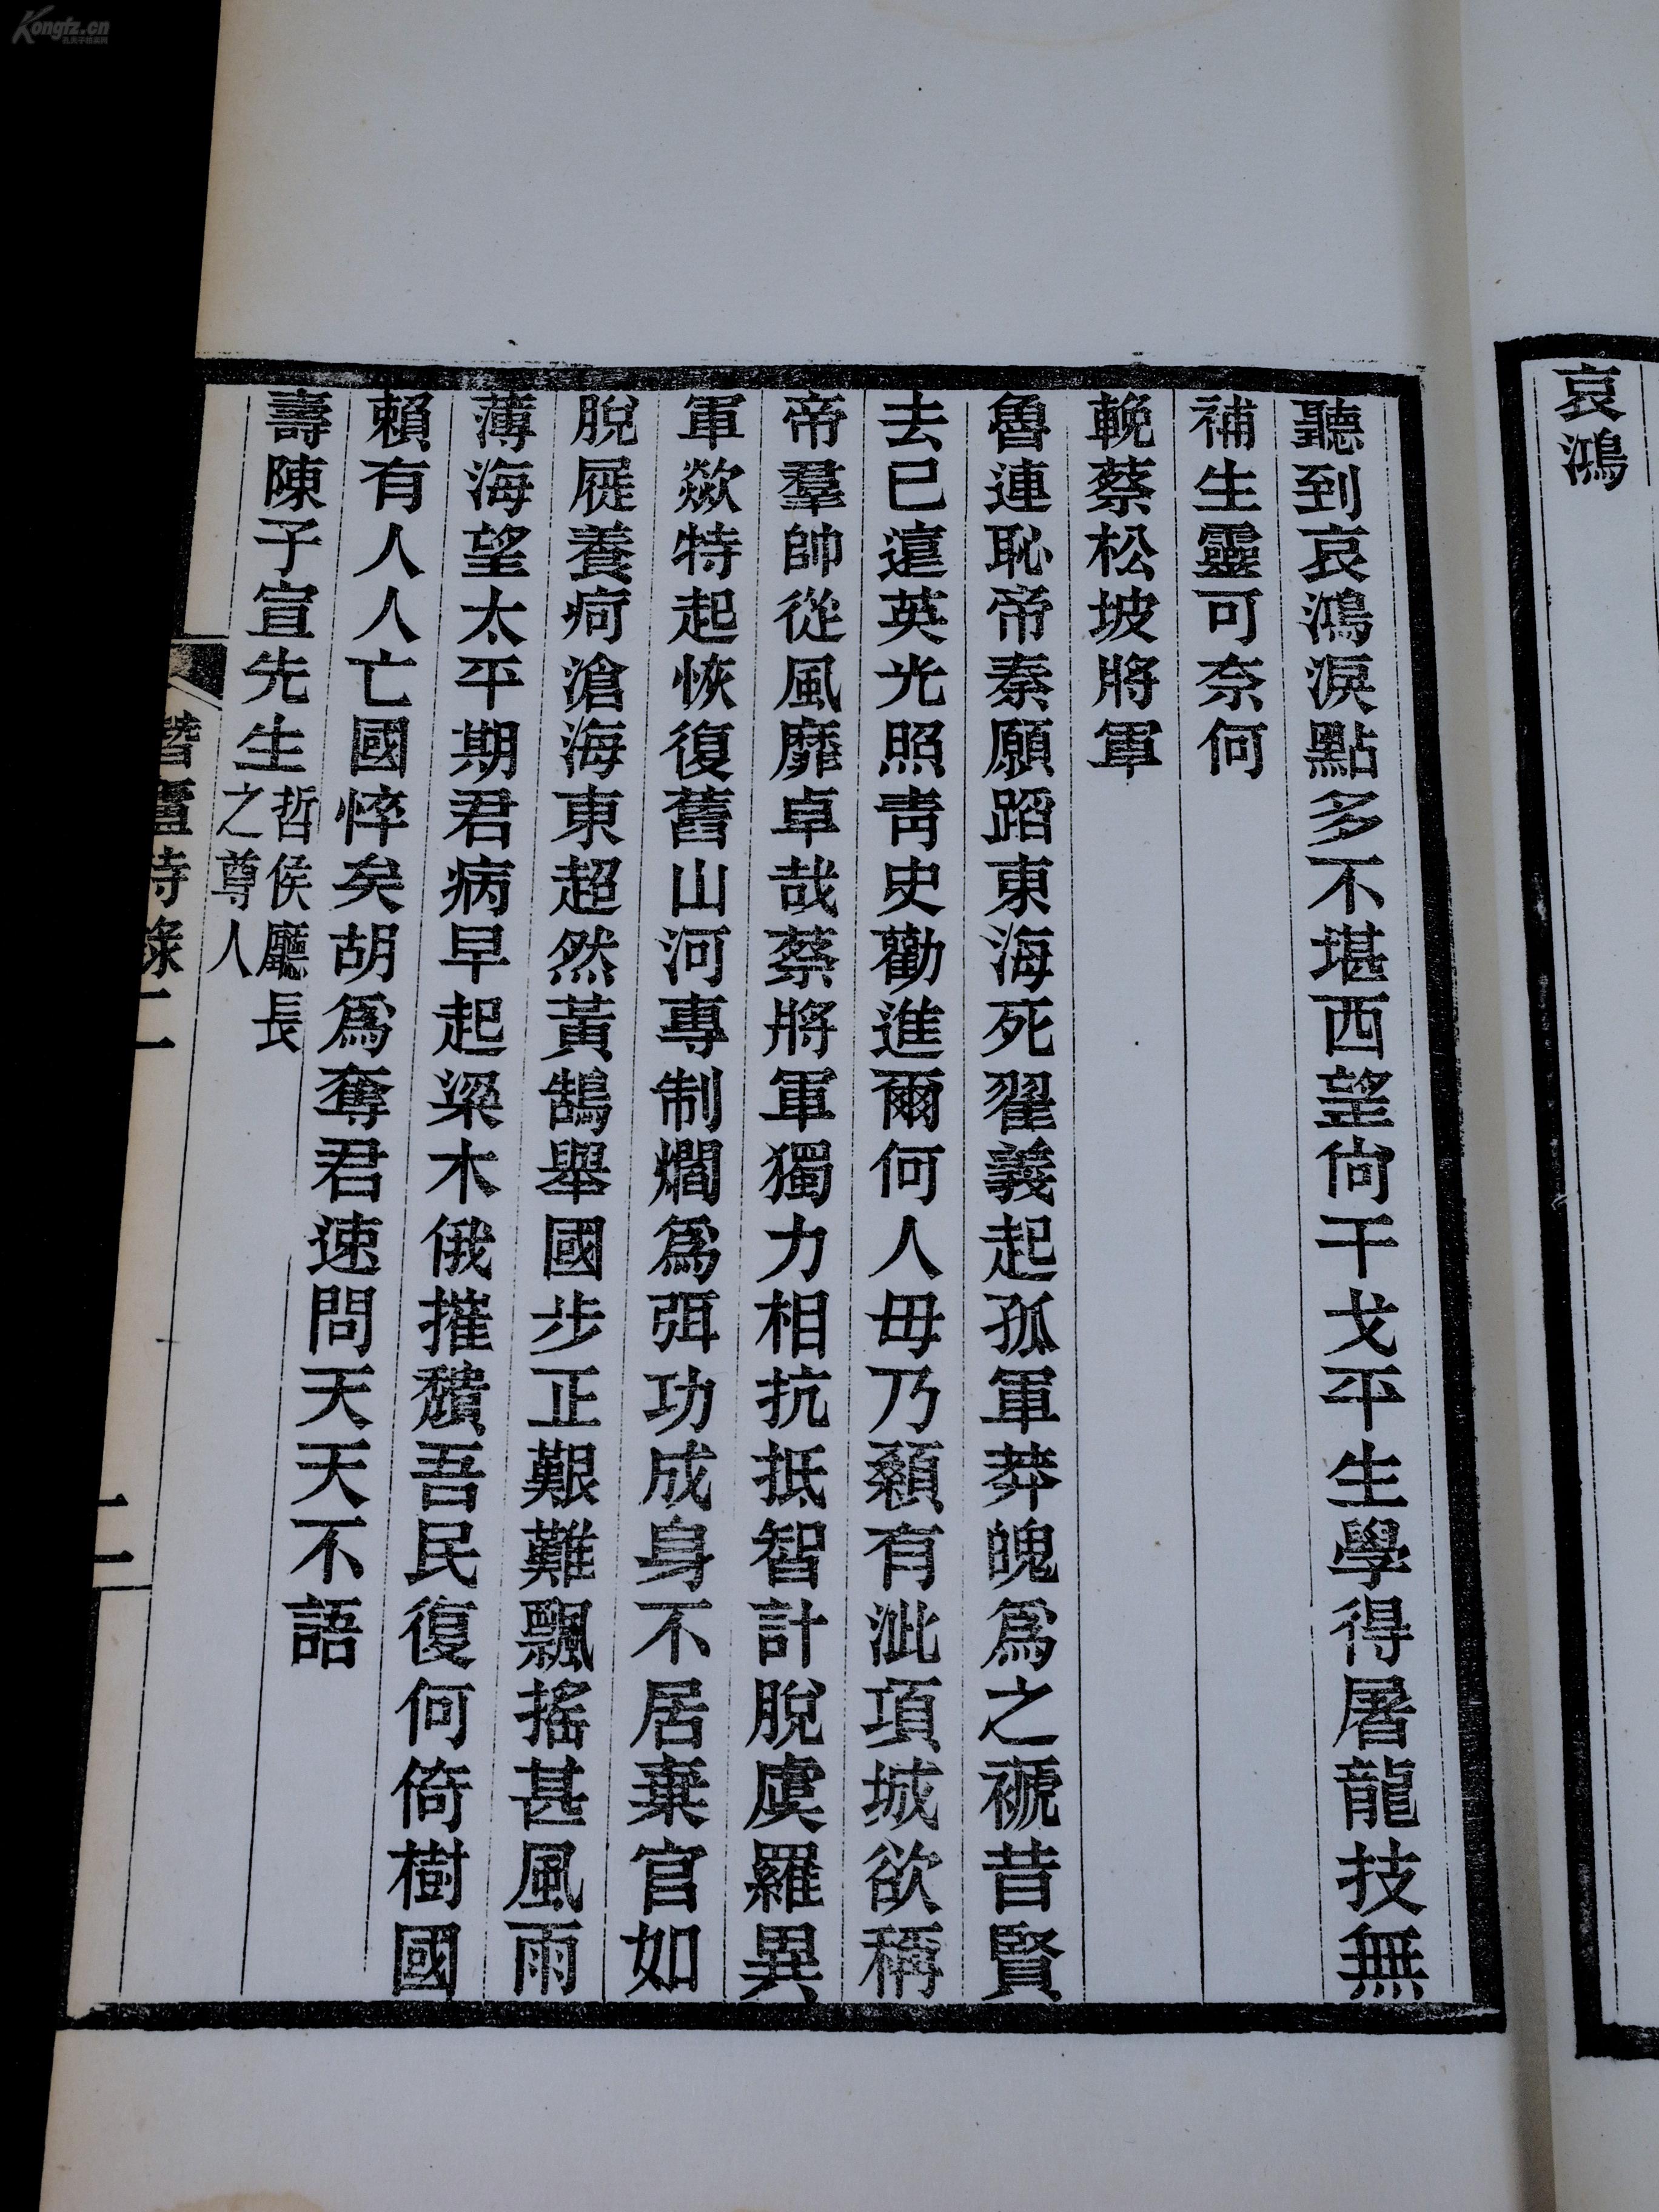 Kongfz.cn
哀鴻
聽到哀鴻淚點多不堪西望尙干戈平生學得屠龍技無
補生靈可奈何
輓蔡松坡將軍
魯連恥帝秦願蹈東海死翟義起孤軍莽魄爲之褫昔賢
去已遠英光照靑史勸進爾何人毋乃顙有泚項城欲稱
帝羣帥從風靡卓哉蔡將軍獨力相抗抵智計脫虞羅異
軍歘特起恢復舊山河專制燗爲弭功成身不居棄官如
脫屣養疴滄海東超然黃鵠舉國步正艱難飄搖甚風雨
薄海望太平期君病早起梁木俄摧穨吾民復何倚樹國
賴有人人亡國悴矣胡爲奪君速問天天不語
壽陳子宣先生哲侯廳長之尊人
詩錄二
二